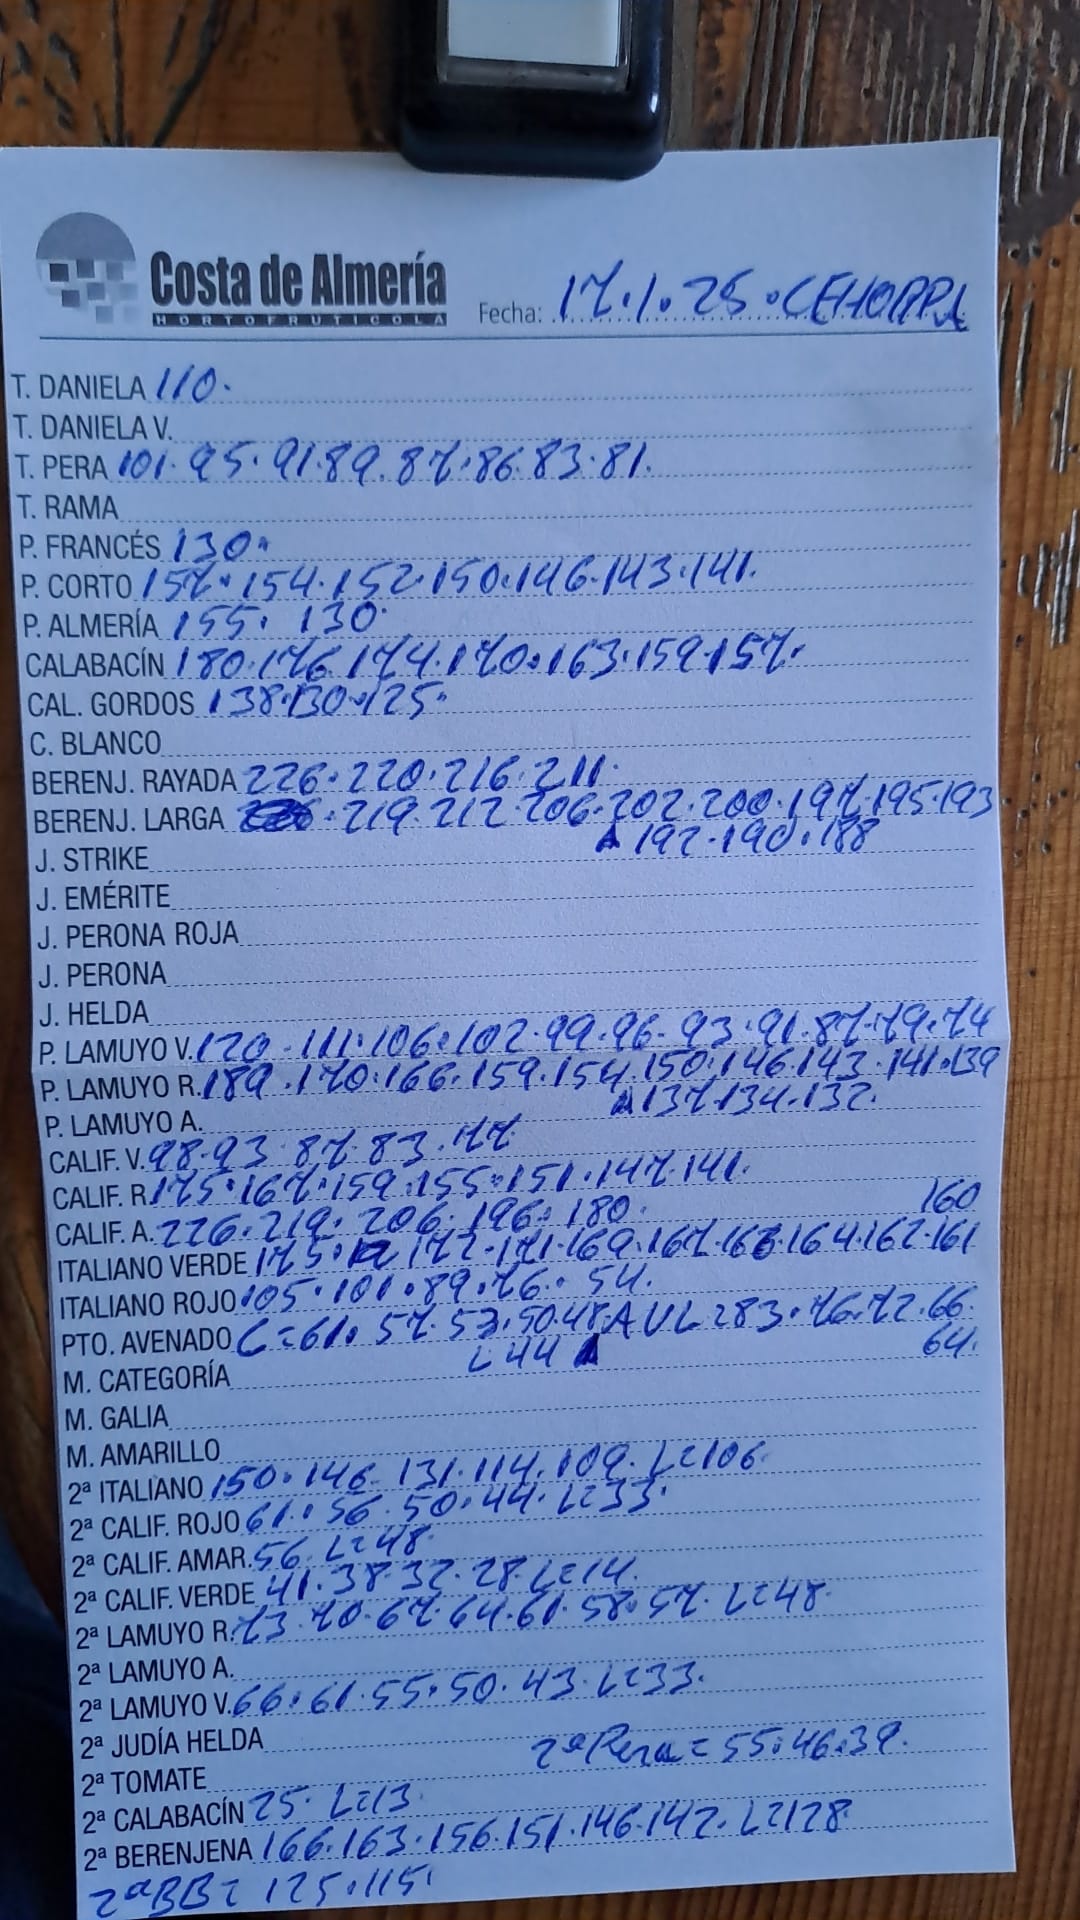 Costa de Almería
HORTOFRUTICOLA
Fecha: 17.1.25.CEHORPA
T. DANIELA 110.
T. DANIELA V.
T. PERA 101.95.91.89.87.86.83.81.
T. RAMA
P. FRANCÉS 130.
P. CORTO 157.154.152.150.146.143.141.
P. ALMERÍA 155. 130.
CALABACÍN 180.176.174.170.163.159.157.
CAL. GORDOS 138.130.125.
C. BLANCO
BERENJ. RAYADA 226.220.216.211.
BERENJ. LARGA .219.212.206.202.200.197.195.193
192.190.188
J. STRIKE
J. EMÉRITE
J. PERONA ROJA
J. PERONA
J. HELDA
P. LAMUYO V. 120.111.106.102.99.96.93.91.87.79.74
P. LAMUYO R. 189.170.166.159.154.150.146.143.141.139
137.134.132.
P. LAMUYO A.
CALIF. V. 98.93.87.83.77
CALIF. R. 175.167.159.155.151.147.141.
CALIF. A. 226.219.206.196.180.
160
ITALIANO VERDE 175. 172.171.169.167.166.164.162.161
ITALIANO ROJO 105.101.89.76.54.
PTO. AVENADO C=61.57.53.50.48.A UL=83.76.72.66.
L44
64.
M. CATEGORÍA
M. GALIA
M. AMARILLO
2ª ITALIANO 150.146.131.114.109.L=106.
2ª CALIF. ROJO 61.56.50.44.L=33.
2ª CALIF. AMAR. 56.L=48.
2ª CALIF. VERDE 41.38.32.28.L=14.
2ª LAMUYO R. 73.70.67.64.61.58.57.L=48.
2ª LAMUYO A.
2ª LAMUYO V. 66.61.55.50.43.L=33.
2ª JUDÍA HELDA
2ª Pera=55.46.39.
2ª TOMATE
2ª CALABACÍN 25.L=13.
2ª BERENJENA 166.163.156.151.146.142.L=128
2ªBB= 125.115.